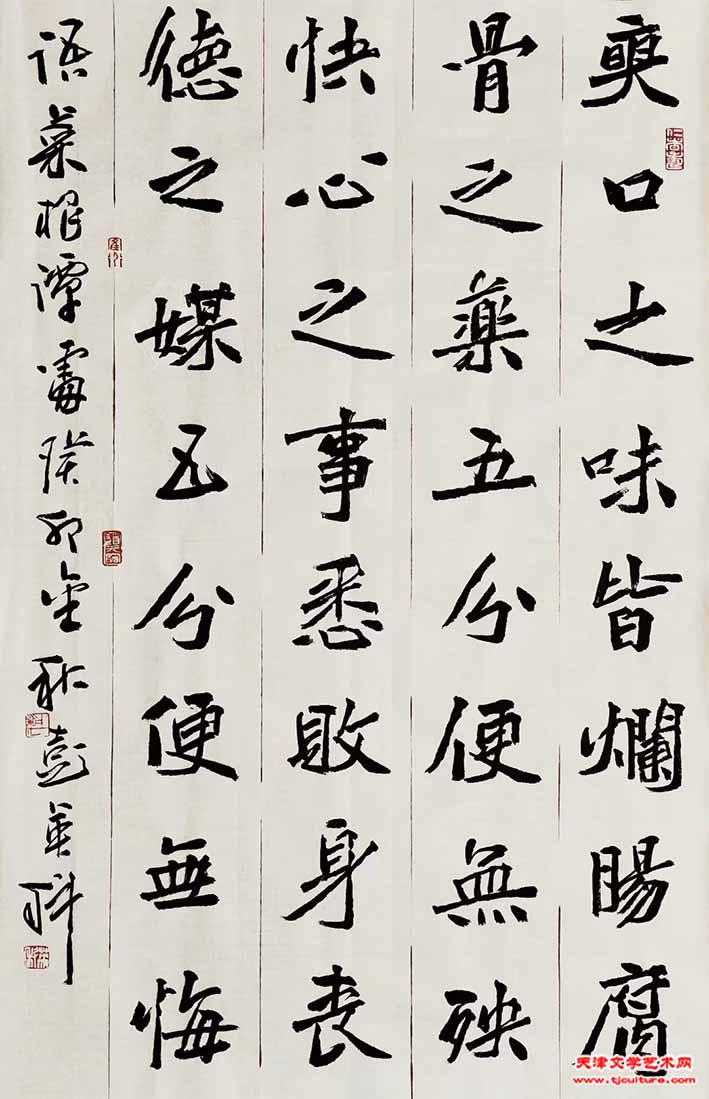 爽口之味皆爛腸腐
骨之藥五分便無殃
快心之事悉敗身丧
德之媒五分便無悔
语菜根谭癸卯金秋彭英科
天津文学艺术网
www.tjculture.com